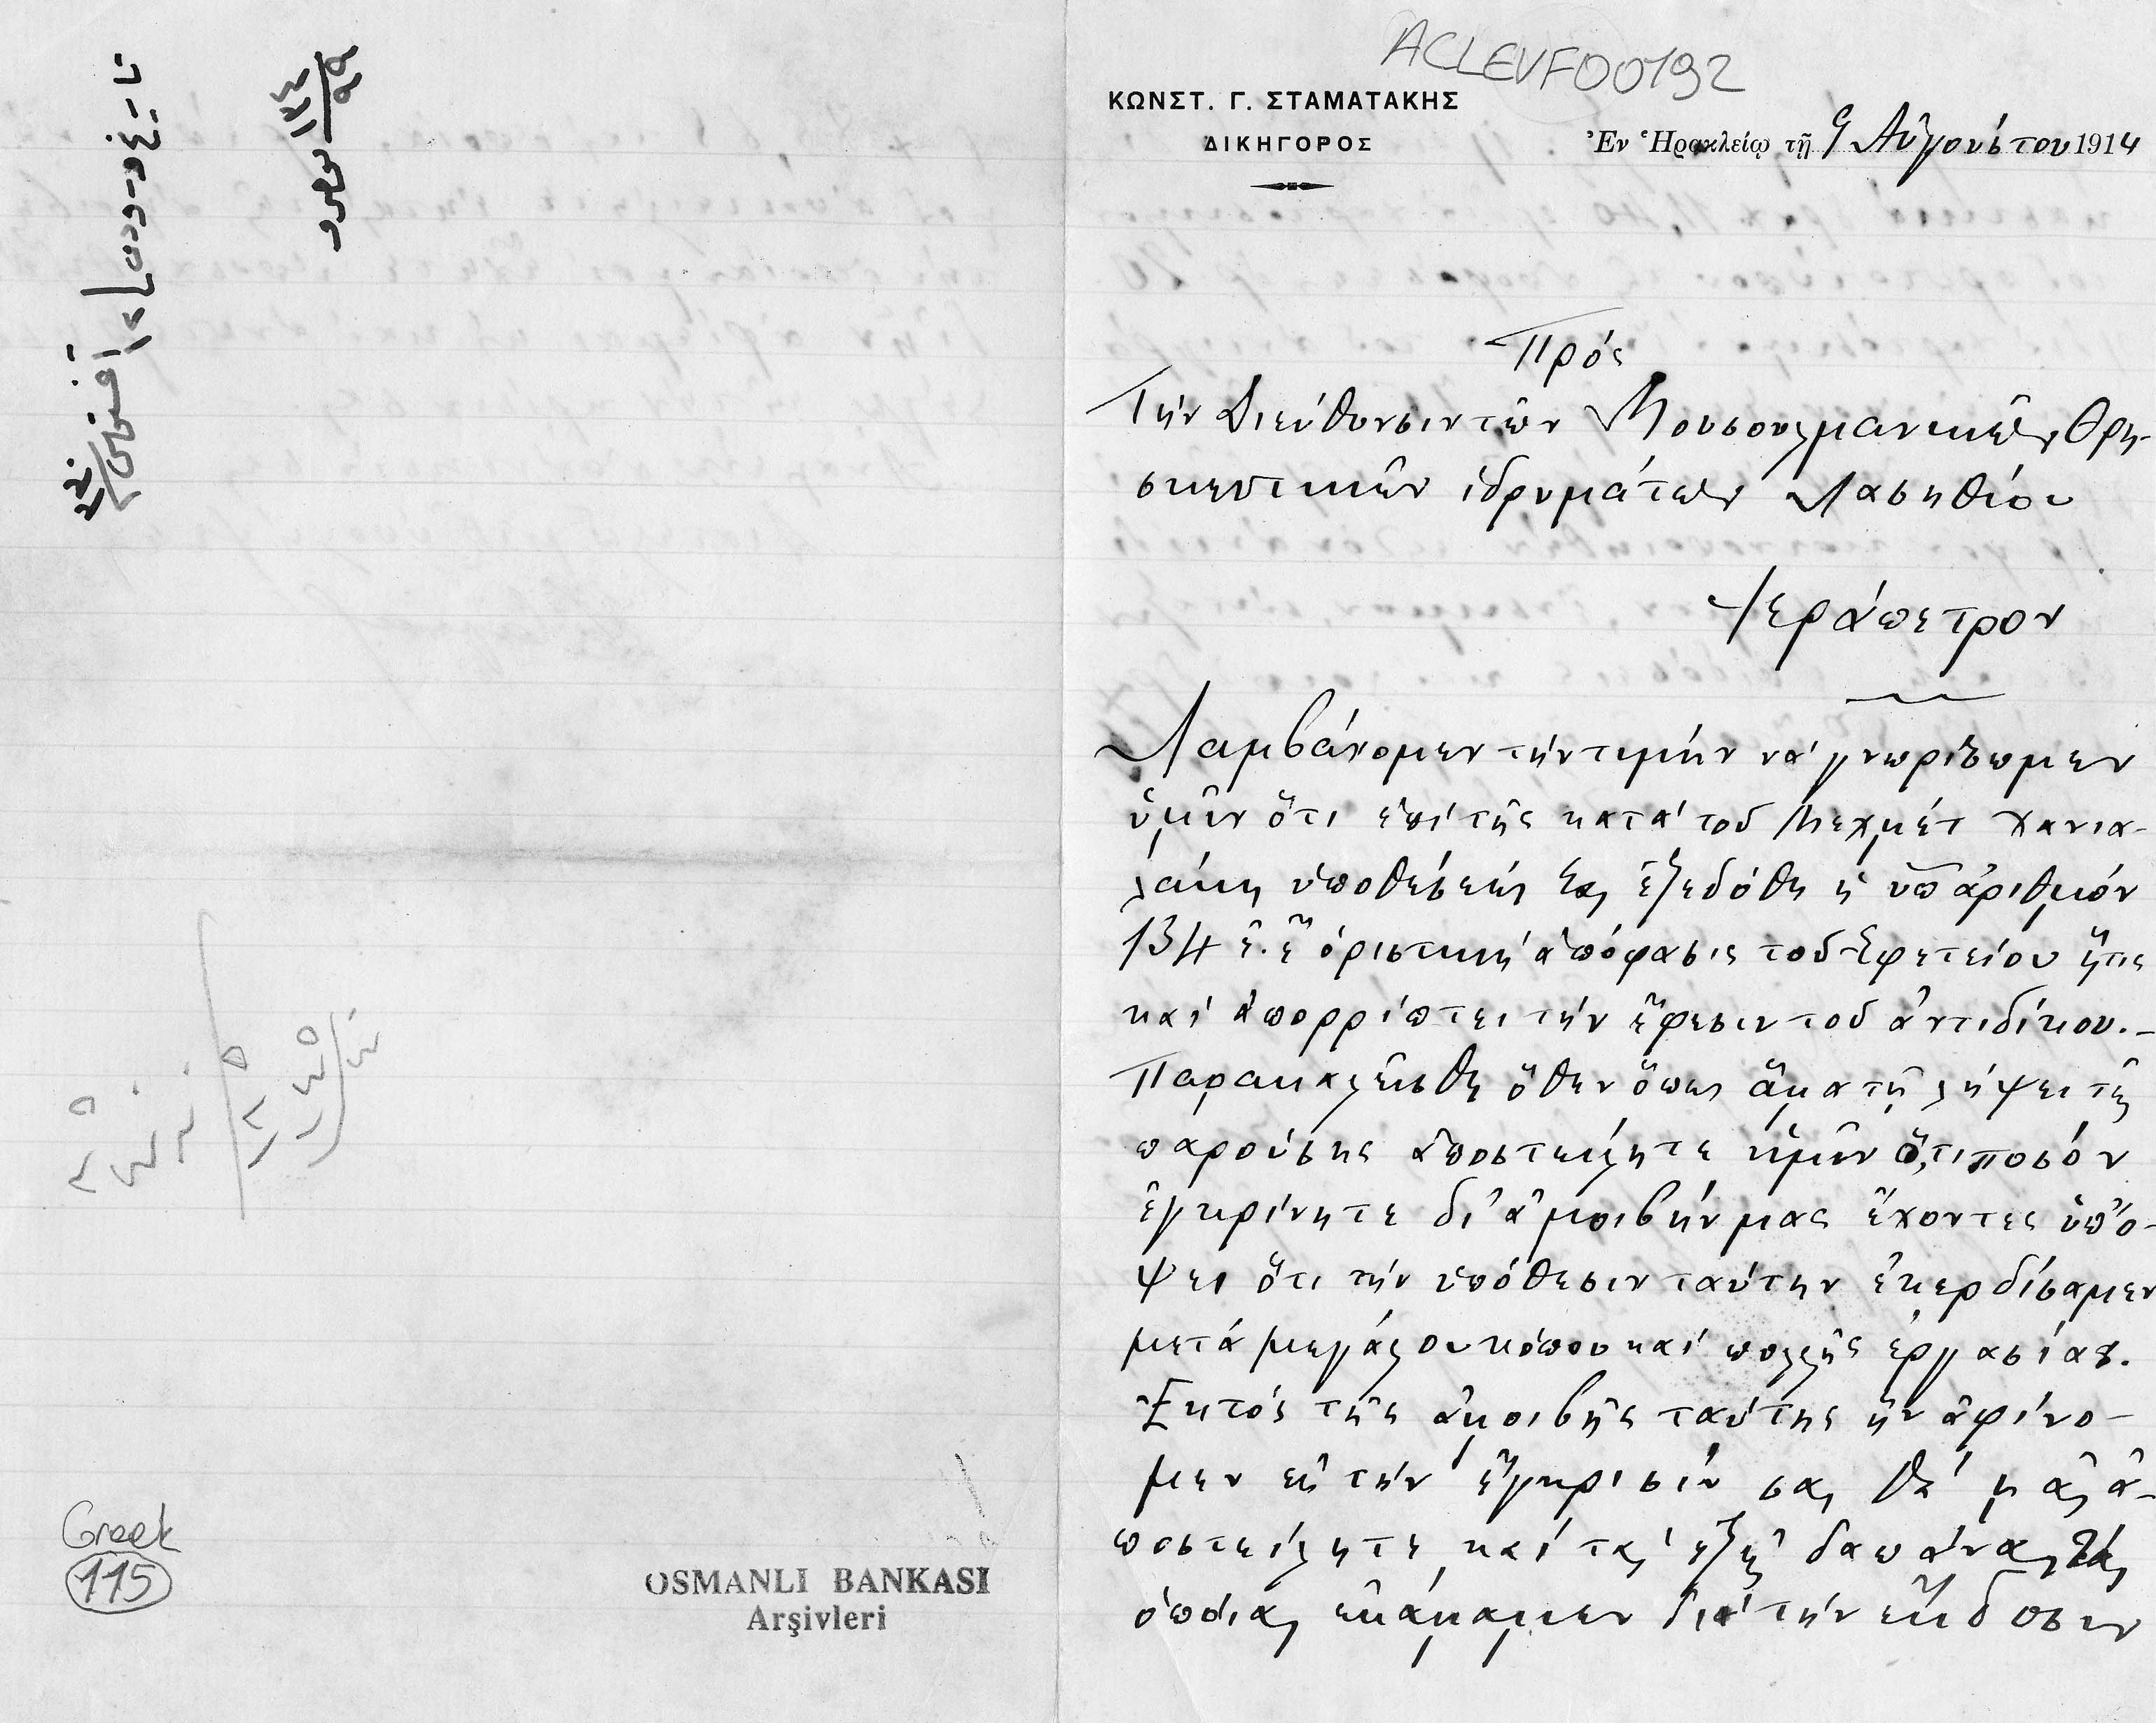 ACLEVF00192
ΚΩΝΣΤ. Γ. ΣΤΑΜΑΤΑΚΗΣ
ΔΙΚΗΓΟΡΟΣ
Ἐν Ἡρακλείῳ τῇ 9 Αὐγούστου 1914
Πρός
Τήν Διεύθυνσιν τῶν Μουσουλμανικῶν Θρη-
σκευτικῶν ἱδρυμάτων Λασηθίου
Ἱεράπετρον
Λαμβάνομεν τήν τιμήν νά γνωρίσωμεν
ὑμῖν ὅτι ἐπί τῆς κατά τοῦ Μεχμέτ Χανια-
λάκη ὑποθέσεώς σας ἐξεδόθη ἡ ὑπ' ἀριθμόν
134 ἐ.ἔ. ὁριστική ἀπόφασις τοῦ Ἐφετείου ἥτις
καί ἀπορρίπτει τήν ἔφεσιν τοῦ ἀντιδίκου.-
Παρακαλεῖσθε ὅθεν ὅπως ἅμα τῇ λήψει τῆς
παρούσης ἀποστείλητε ἡμῖν ὅ,τι ποσόν
ἐγκρίνητε δι' ἀμοιβήν μας ἔχοντες ὑπ' ὄ-
ψει ὅτι τήν ὑπόθεσιν ταύτην ἐκερδίσαμεν
μετά μεγάλου κόπου καί πολλῆς ἐργασίας.
Ἐκτός τῆς ἀμοιβῆς ταύτης ἥν ἀφίνο-
μεν εἰς τήν ἔγκρισίν σας θά μᾶς ἀ-
ποστείλητε καί τάς ἑξῆς δαπάνας τάς
ὁποίας ἐκάμαμεν διά τήν ἔκδοσιν
Greek
115
OSMANLI BANKASI
Arşivleri